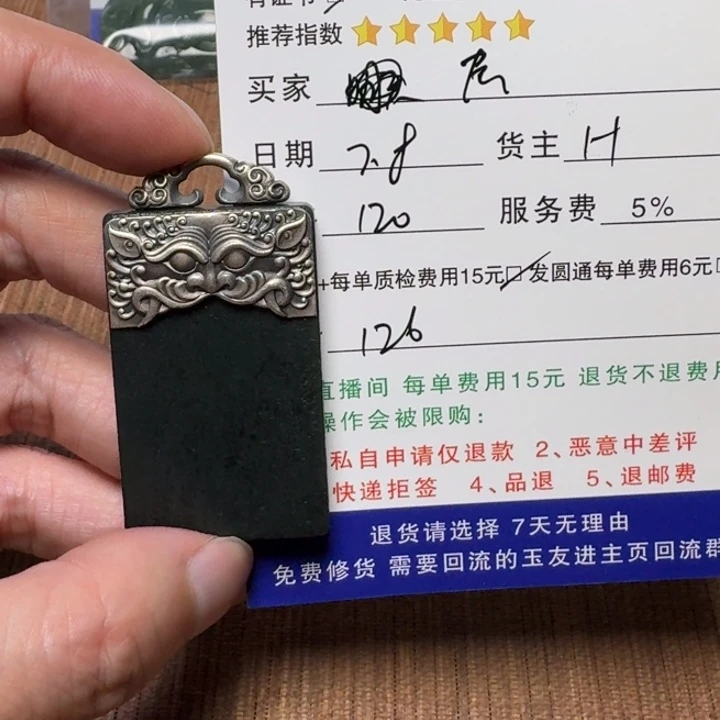 有证书
推荐指数
买家
日期 7.8 货主 H
120 服务费 5%
+每单质检费用15元□ 发圆通每单费用6元□
126
直播间 每单费用15元 退货不退费用
操作会被限购：
私自申请仅退款 2、恶意中差评
快递拒签 4、品退 5、退邮费
退货请选择 7天无理由
免费修货 需要回流的玉友进主页回流群